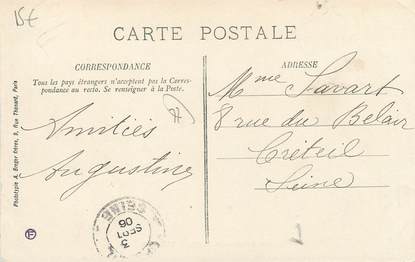 15€
CARTE POSTALE
CORRESPONDANCE
Tous les pays étrangers n'acceptent pas la Corres-
pondance au recto. Se renseigner à la Poste.
Amitiés
Augustine
ADRESSE
Mme Savart
8 rue du Bel air
Créteil
Seine
Phototypie A. Breger frères, 9, Rue Thénard, Paris
SEINE
3
SEPT
06